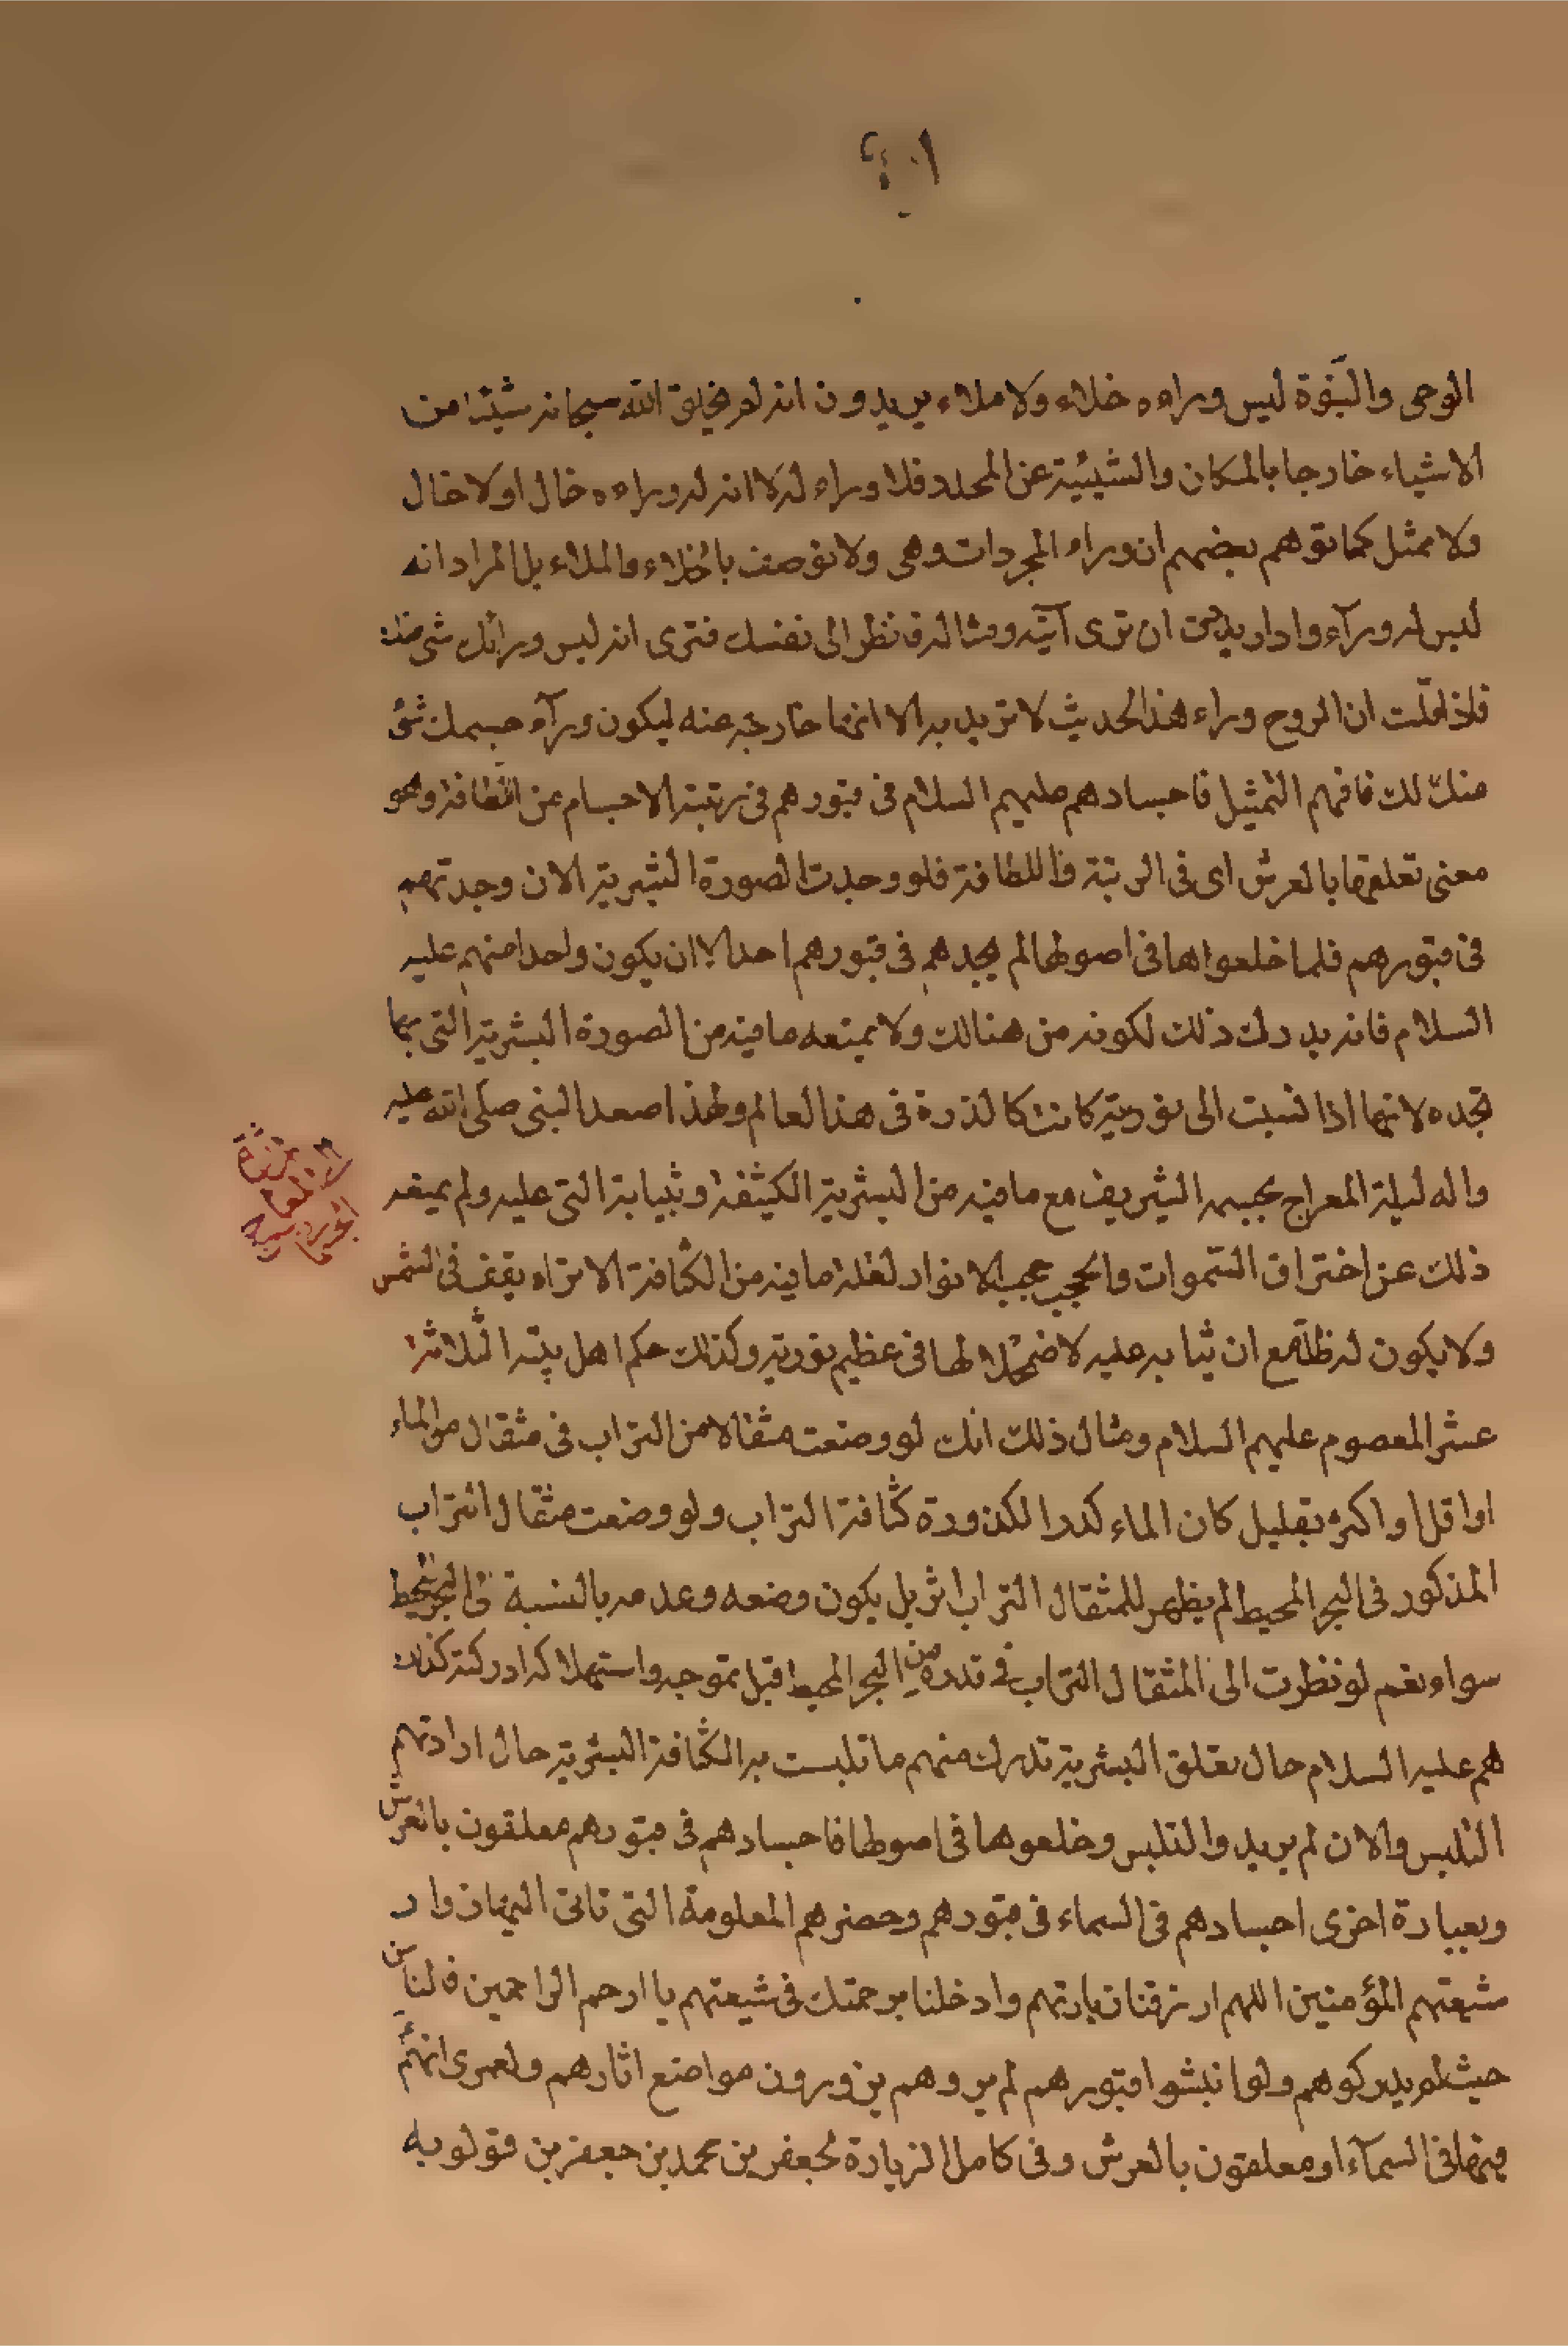 الوحى والنبّوة ليس وراءه خلاء ولا ملاء يريدون انه لم يخلق الله سبحانه شيئا من
الاشياء خارجا بالمكان والشيئية عن المحدد فلا وراء له لا انه له وراءه خال او لا خال
ولا ممثل كما توهم بعضهم ان وراء المجردات وهى ولا توصف بالخلاء والملاء بل المراد انه
ليس له ورآء واذا ان ترى آيته ومثاله فانظر الى نفسك فترى انه ليس ورائك شى منك
فاذا قلت ان الروح وراء هذا الحديث لا تريد به الا انها خارجه عنه ليكون ورآء جسمك شئ
منك لك فافهم التمثيل فاجسادهم عليهم السلام فى قبورهم فى رتبة الاجسام من اللطافة وهو
معنى تعلقها بالعرش اى فى الرتبة واللطافة فلو وجدت الصورة البشرية الان وجدتهم
فى قبورهم فلما خلعوا ها فى اصولها لم يجدهم فى قبورهم احد الا ان يكون واحدا منهم عليه
السلام فانه يدرك ذلك لكونه من هنالك ولا يمنعه ما فيه من الصورة البشرية التى بها
تجده لانها اذا نسبت الى نوريته كانت كالذرة فى هذا العالم ولهذا صعد النبى صلى الله عليه
واله ليلة المعراج بجسمه الشريف مع ما فيه من البشرية الكثيفة وبثيابه التى عليه ولم يمنعه
ذلك عن اختراق السّموات والحجب حجب الانوار لقلة ما فيه من الكثافة الا تراه يقف فى الشمس
ولا يكون له ظلّ مع ان ثيابه عليه لاضمحلالها فى عظيم نوريته وكذلك حكم اهل بيته الثلاثة
عشر المعصوم عليهم السلام ومثال ذلك انك لو وضعت مثقالا من التراب فى مثقال من الماء
او اقل او اكثر بقليل كان الماء كدرا لكدورة كثافة التراب ولو وضعت مثقال التراب
المذكور فى البحر المحيط لم يظهر للمثقال التراب اثر بل يكون وضعه وعدمه بالنسبة الى البحر المحيط
سواء نعم لو نظرت الى المثقال التراب فى قدره من البحر المحيط قبل تموجه واستهلاكه ادركته كذلك
هم عليه السلام حال تعلق البشرية تدرك منهم ما تلبست به الكثافة البشرية حال ارادتهم
التلبس والان لم يريدوا التلبس وخلعوها فى اصولها فاجسادهم فى قبورهم معلقون بالعرش
وبعبارة اخرى اجسادهم فى السماء فى قبورهم وحضرهم المعلومة التى تاتى اليها زوار
شيعتهم المؤمنين اللهم ارزقنا زيارتهم وادخلنا برحمتك فى شيعتهم يا ارحم الراحمين فالناس
حيث لم يدركوهم ولو نبشوا قبورهم لم يروهم يزورون مواضع اثارهم ولعمرى انهم
فيها فى السمآء او معلقون بالعرش وفى كامل الزيارة لجعفر بن محمد بن جعفر بن قولويه